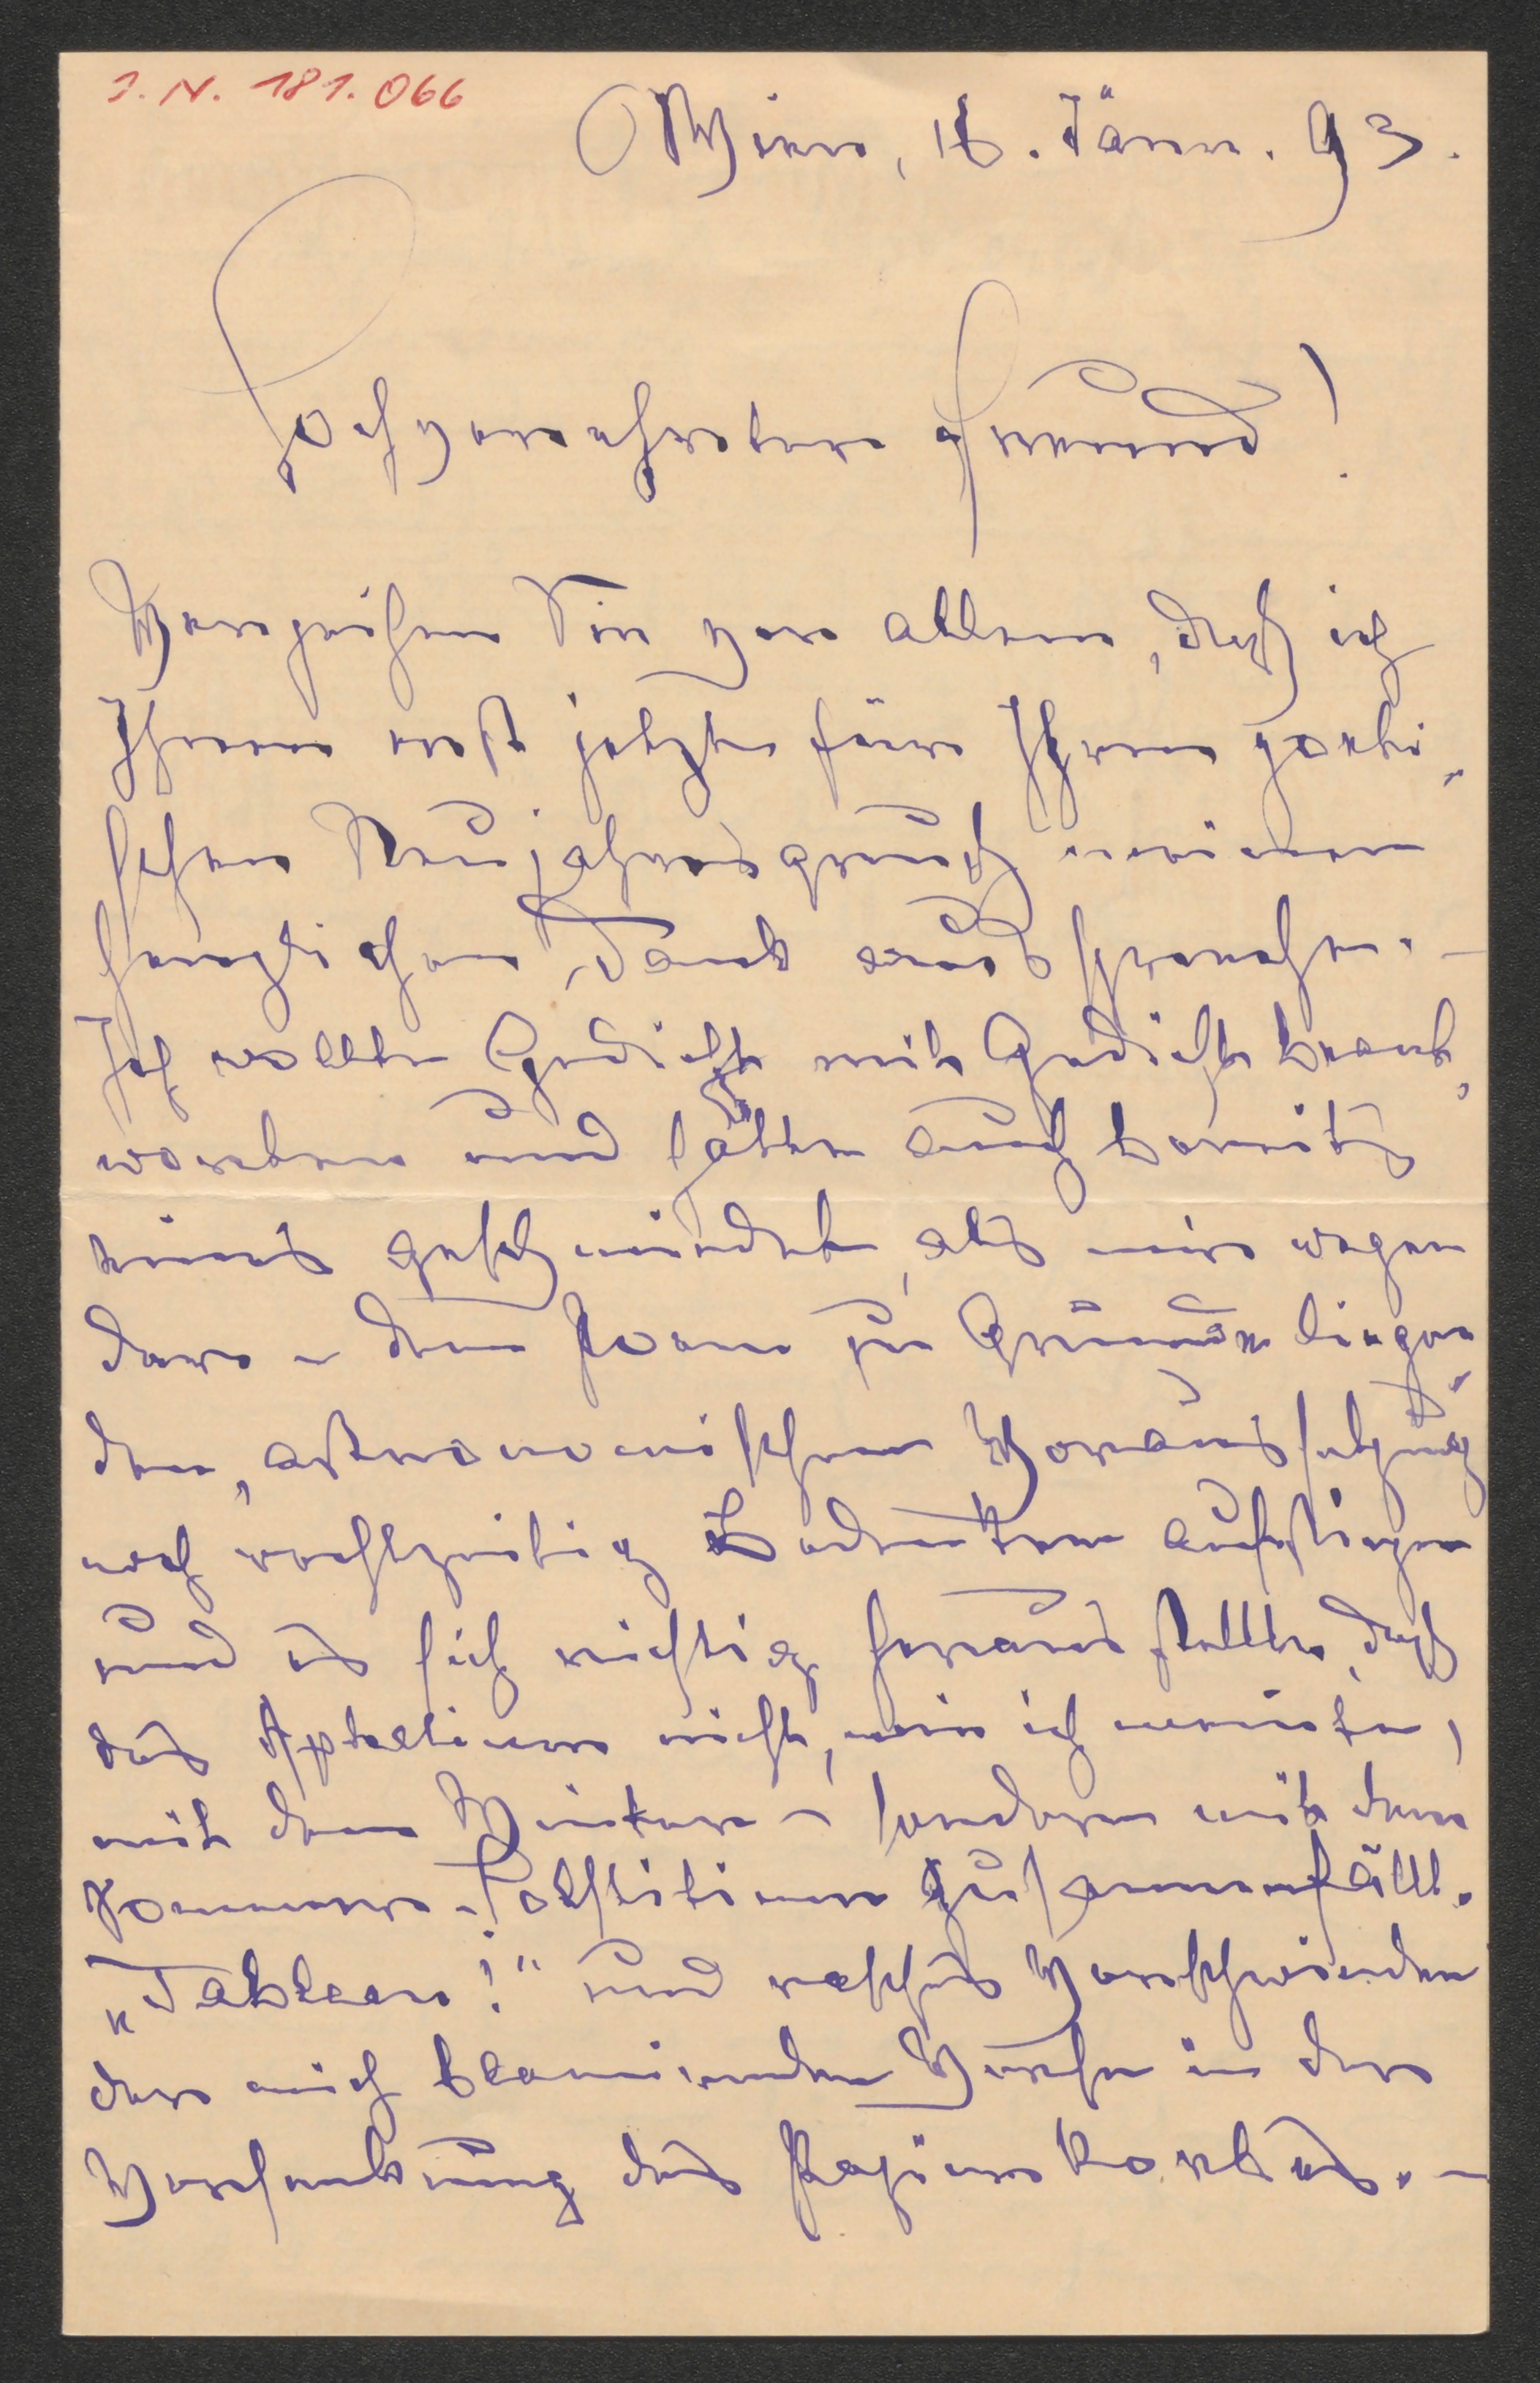 I. N. 181.066
Wien, 16. Jänn. 93.
Hochverehrter Freund!
Verzeihen Sie vor allem, daß ich
Ihnen erst jetzt für Ihren poeti-
schen Neujahrsgruß meinen
herzlichen Dank ausspreche. –
Ich wollte Gedicht mit Gedicht beant-
worten und hatte auch bereits
eines geschmiedet, als mir wegen
der – dem Poem zu Grunde liegen-
den, astronomischen Voraussetzung
noch rechtzeitig Bedenken aufstiegen
und es sich richtig herausstellte, daß
das Aphelium nicht, wie ich meinte,
mit dem Winter – sondern mit dem
Sommer-Solstitium zusammenfällt.
„Tableau!“ und rasches Verschwinden
der mich blamirenden Verse in der
Versenkung des Papierkorbes. –